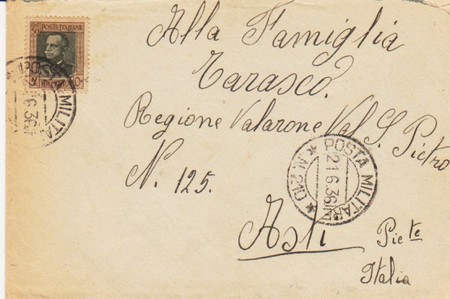 POSTE ITALIANE
Alla Famiglia
Tarasco.
Regione Valarone Val S. Pietro
N. 125.
POSTA MILITARE
21.6.36.XIV
* N. 210 *
Asti
Pie te
Italia
POSTA MILITA
.6.36.